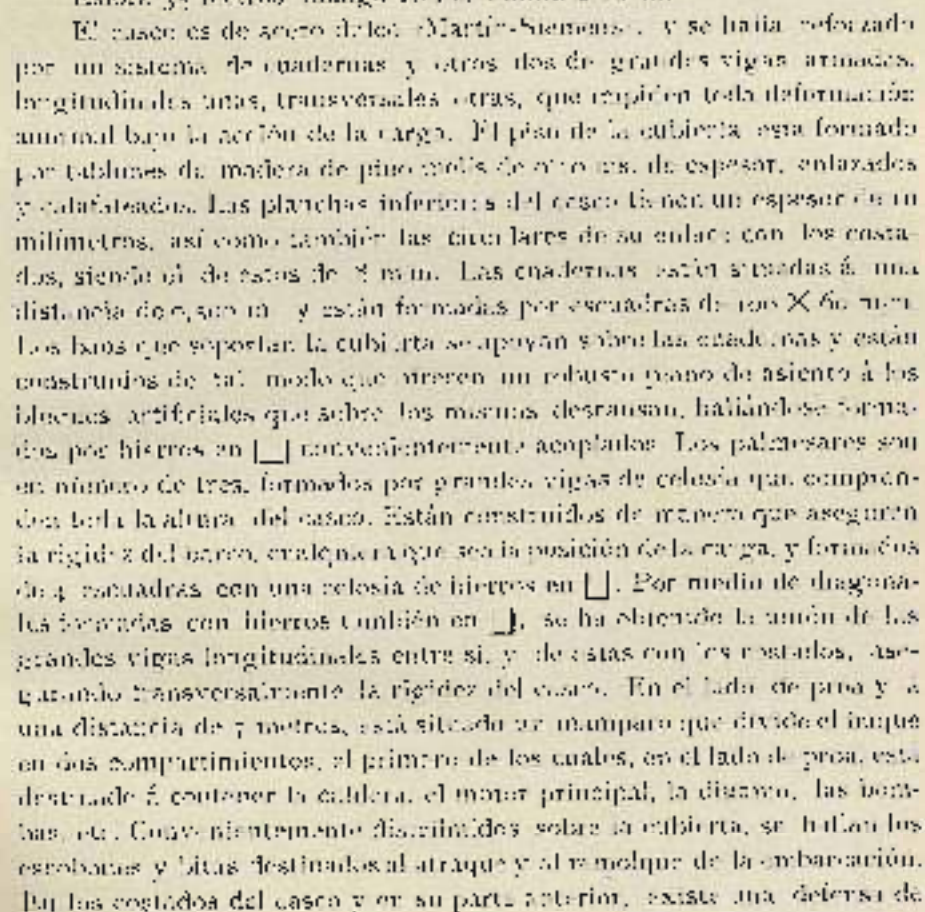 El casco es de acero dulce «Martín-Siemens», y se halla reforzado
por un sistema de cuadernas y otros dos de grandes vigas armadas,
longitudinales unas, transversales otras, que impiden toda deformación
anormal bajo la acción de la carga. El piso de la cubierta está formado
por tablones de madera de pino de espesor, enlazados
y calafateados. Las planchas inferiores del casco tienen un espesor de 10
milímetros, así como también las circulares de su enlace con los costa-
dos, siendo el de éstos de 8 m/m. Las cuadernas están situadas á una
distancia de y están formadas por escuadras de 100 × 60 m/m.
Los baos que soportan la cubierta se apoyan sobre las cuadernas y están
construidos de tal modo que ofrecen un robusto plano de asiento á los
bloques artificiales que sobre los mismos descansan, hallándose forma-
dos por hierros en |_| convenientemente acoplados. Los palmejares son
en número de tres, formados por grandes vigas de celosía que compren-
den toda la altura del casco. Están construidos de manera que aseguren
la rigidez del casco, cualquiera que sea la posición de la carga, y formados
de 4 escuadras con una celosía de hierros en |_|. Por medio de diagona-
les formadas con hierros también en |_|, se ha obtenido la unión de las
grandes vigas longitudinales entre sí, y de éstas con los costados, ase-
gurando transversalmente la rigidez del casco. En el lado de proa y á
una distancia de 7 metros, está situado un mamparo que divide el buque
en dos compartimientos, el primero de los cuales, en el lado de proa, está
destinado á contener la caldera, el motor principal, la dinamo, las bom-
bas, etc. Convenientemente distribuidos sobre la cubierta, se hallan los
escobones y bitas destinados al atraque y al remolque de la embarcación.
En los costados del casco y en su parte anterior, existe una defensa de